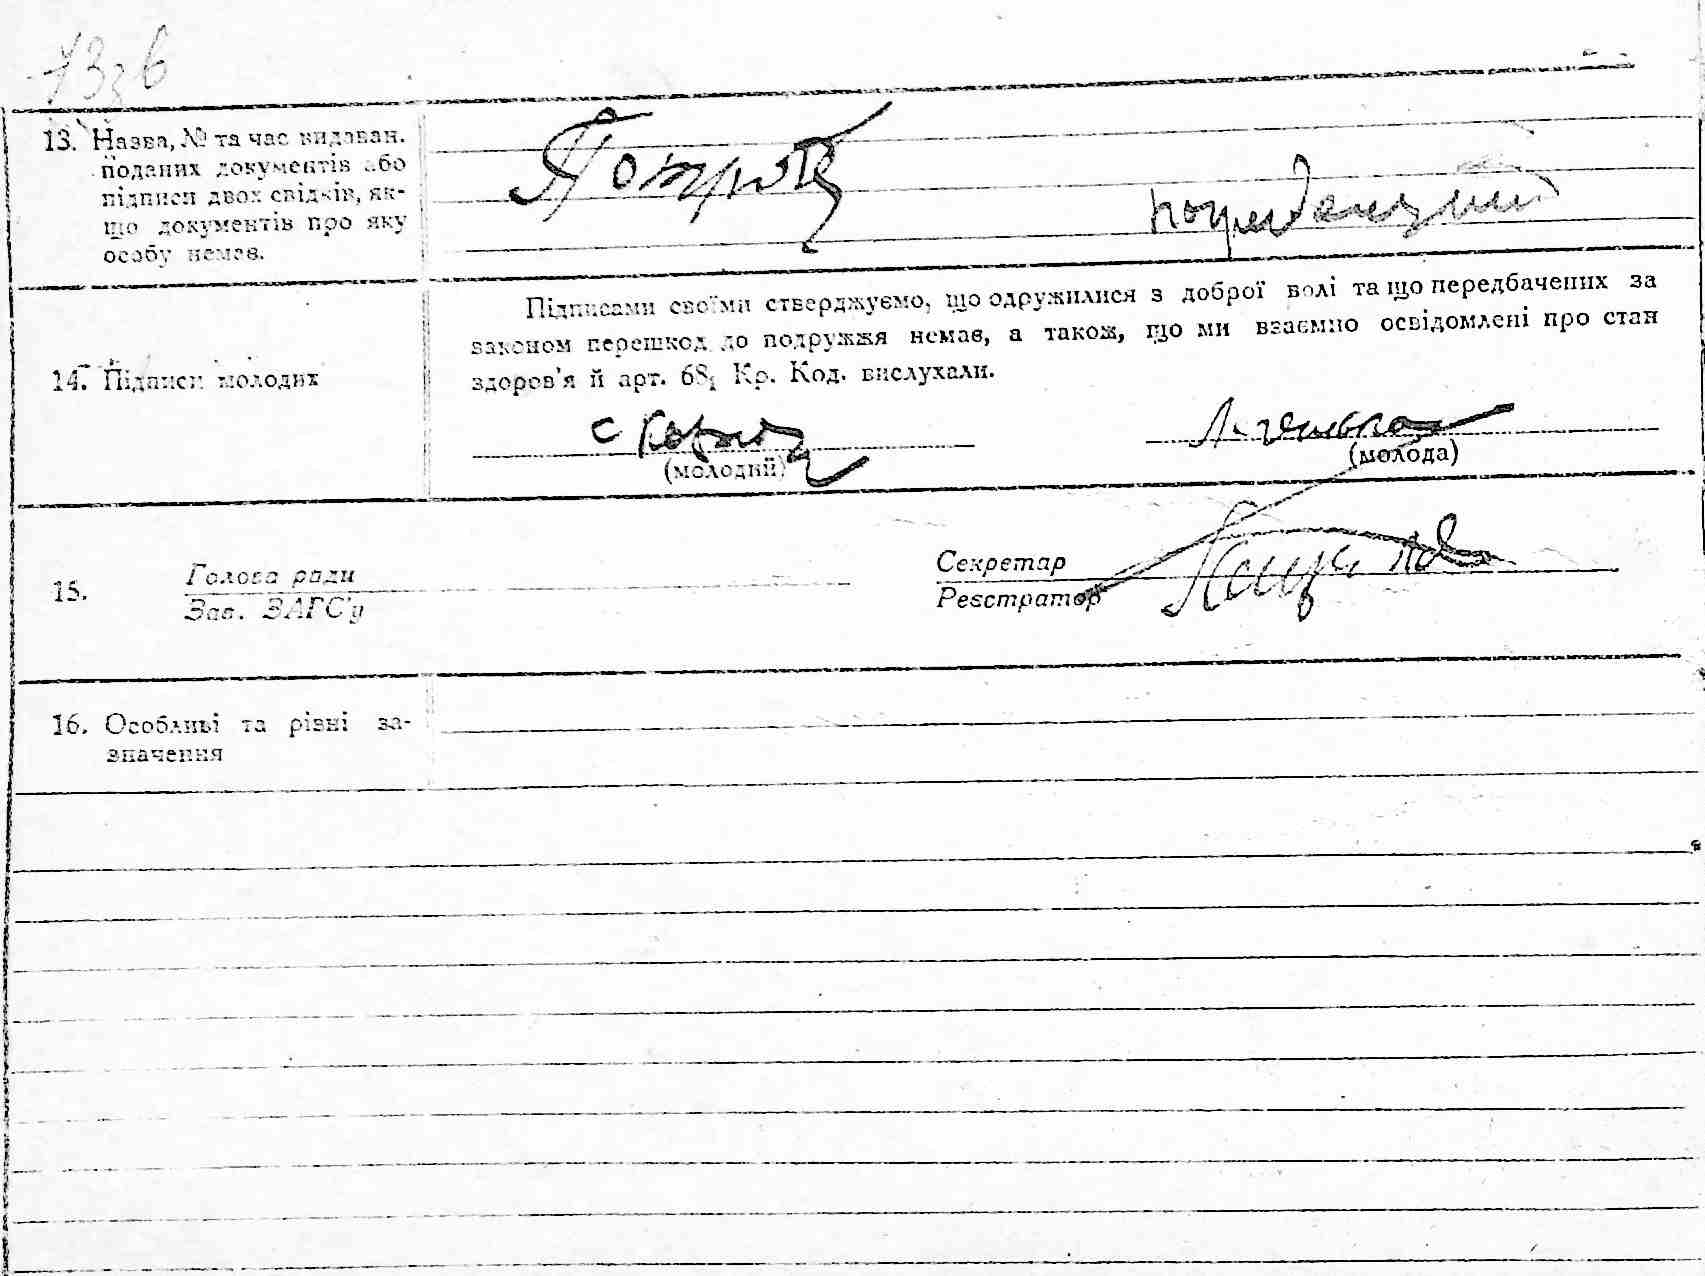 13. Назва, № та час видаван.
поданих документів або
підписи двох свідків, як-
що документів про яку
особу немає.
Підписами своїми стверджуємо, що одружилися з доброї волі та що передбачених за
законом перешкод до подружжя немає, а також, що ми взаємно освідомлені про стан
здоров'я й арт. 68₁ Кр. Код. вислухали.
14. Підписи молодих
(молодий)
(молода)
15.
Голова ради
Зав. ЗАГС'у
Секретар
Реєстратор
16. Особливі та різні за-
значення